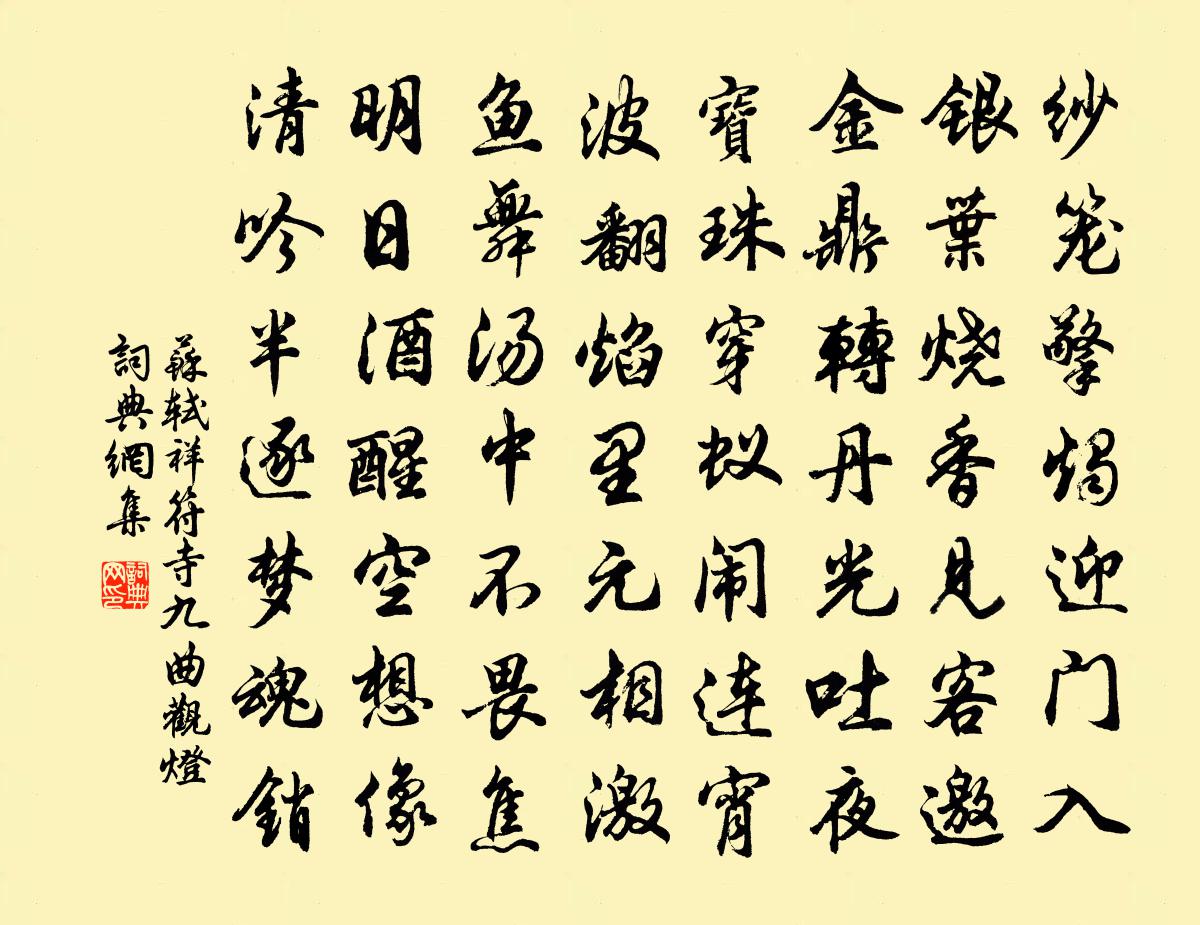 纱笼擎烛迎门入
银葉烧香見客邀
金鼎轉丹光吐夜
寶珠穿蚁闹连宵
波翻焰里元相激
鱼舞汤中不畏焦
明日酒醒空想像
清吟半逐梦魂銷
蘇軾祥符寺九曲觀燈
詞典網集
詞典网印